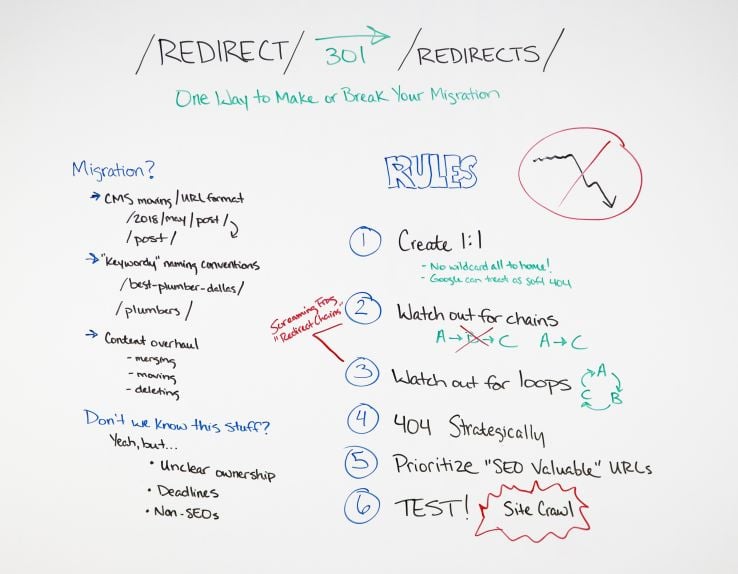 /REDIRECT/ 301 /REDIRECTS/
One Way to Make or Break Your Migration
Migration?
→ CMS moving/URL format
/2018/may/post/
/post/
→ "Keywordy" naming conventions
/best-plumber-dallas/
/plumbers/
→ Content overhaul
- merging
- moving
- deleting
Don't we know this stuff?
Yeah, but...
• Unclear ownership
• Deadlines
• Non-SEOs
RULES
1 Create 1:1
- No wildcard all to home!
- Google can treat as soft 404
2 Watch out for chains
A→B→C A→C
Screaming Frog
"Redirect Chains"
3 Watch out for loops
A
B
C
4 404 Strategically
5 Prioritize "SEO Valuable" URLs
6 TEST! Site Crawl